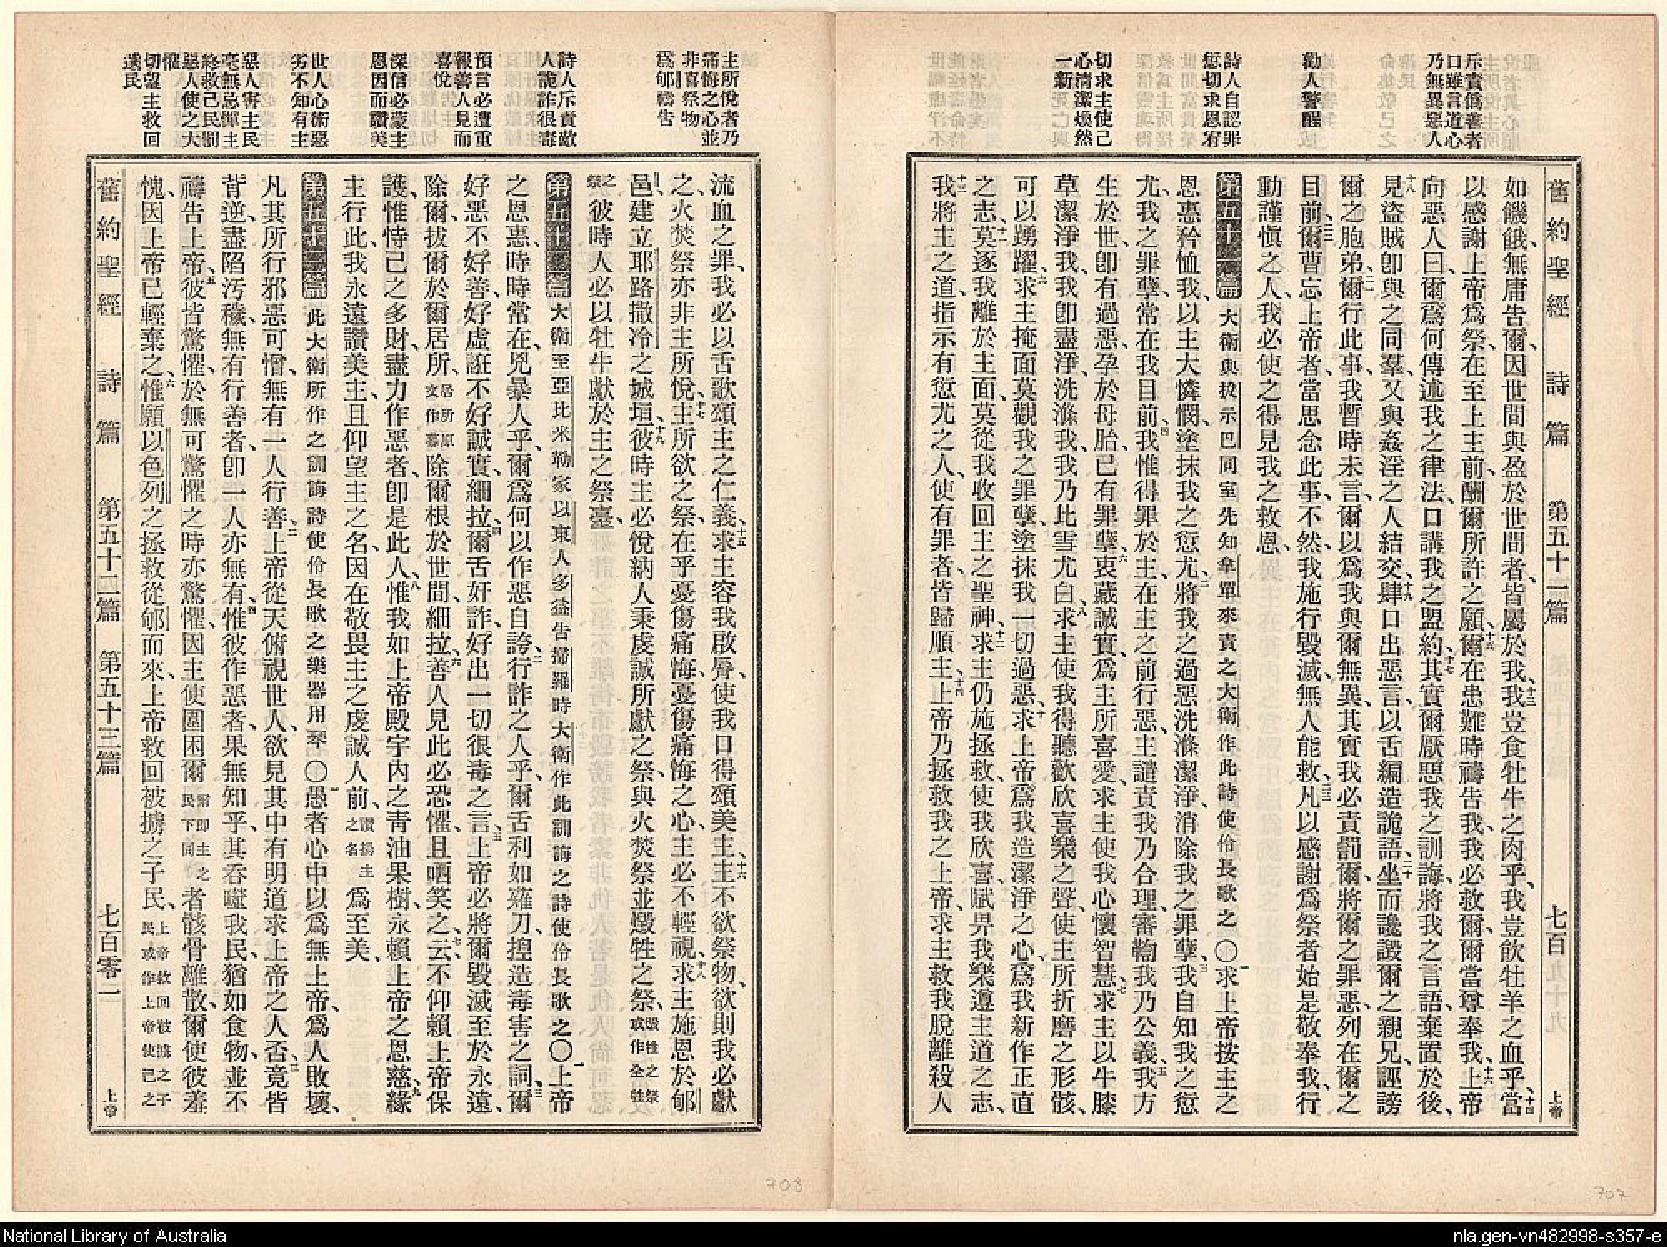 斥責僞善者
口雖言道心
乃無異惡人
勸人警醒
詩人自認罪
愆切求恩宥
切求主使己
心清潔煥然
一新
舊約聖經 詩篇 第五十一篇 七百零一 上帝
如饑餓、無庸告爾、因世間與盈於世間者、皆屬於我、十三我豈食牡牛之肉乎、我豈飲牡羊之血乎、十四當
以感謝上帝爲祭、在至上主前、酬爾所許之願、十五爾在患難時禱告我、我必救爾、爾當尊奉我、十六上帝
向惡人曰、爾爲何傳述我之律法、口講我之盟約、十七其實爾厭惡我之訓誨、將我之言語、棄置於後、
十八見盜賊卽與之同羣、又與姦淫之人結交、十九肆口出惡言、以舌編造詭語、二十坐而讒譭爾之親兄、誣謗
爾之胞弟、二一爾行此事、我暫時未言、爾以爲我與爾無異、其實我必責罰爾、將爾之罪惡、列在爾之
目前、二二爾曹忘上帝者、當思念此事、不然、我施行毀滅、無人能救、二三凡以感謝爲祭者、始是敬奉我、行
動謹愼之人、我必使之得見我之救恩、
第五十一篇 大衛與拔示巴同室、先知拿單來責之、大衛作此詩、使伶長歌之、〇一求上帝按主之
恩惠矜恤我、以主大憐憫塗抹我之愆尤、二將我之過惡洗滌潔淨、消除我之罪孽、三我自知我之愆
尤、我之罪孽、常在我目前、四我惟得罪於主、在主之前行惡、主譴責我、乃合理、審鞫我、乃公義、五我方
生於世、卽有過惡、孕於母胎、已有罪孽、六主所喜愛、衷藏誠實、求主使我心懷智慧、七求主以牛膝
草潔淨我、我卽盡淨、洗滌我、我乃比雪尤白、八求主使我得聽歡欣喜樂之聲、使主所折磨之形骸、
可以踴躍、九求主掩面莫觀我之罪孽、塗抹我一切過惡、十求上帝爲我造潔淨之心、爲我新作正直
之志、十一莫逐我離於主面、莫從我收回主之聖神、十二求主仍施拯救、使我欣喜、賦畀我樂遵主道之志、
十三我將主之道、指示有愆尤之人、使有罪者、皆歸順主、十四上帝乃拯救我之上帝、求主救我脫離殺人
主所悅者乃
痛悔之心並
非喜祭物
爲郇禱告
詩人斥責敵
人詭詐很毒
預言必遭重
報善人見而
喜悅
深信必蒙主
恩因而讚美
世人心術惡
劣不知有主
惡人害主民
毫無忌憚主
終救己民罰
惡人使之大
懼
切望主救回
選民
流血之罪、我必以舌歌頌主之仁義、十五求主容我啟脣、使我口得頌美主、十六主不欲祭物、欲則我必獻
之、火焚祭亦非主所悅、十七主所欲之祭、在乎憂傷痛悔、憂傷痛悔之心、主必不輕視、十八求主施恩於郇
邑、建立耶路撒冷之城垣、十九彼時主必悅納人秉虔誠所獻之祭、與火焚祭、並毀牲之祭、毀牲之祭或作全牲
之祭彼時人必以牡牛獻於主之祭臺、
第五十二篇 大衛至亞比米勒家、以東人多益告掃羅時、大衛作此訓誨之詩、使伶長歌之、〇一上帝
之恩惠、時時常在、兇暴人乎、爾爲何以作惡自誇、二行詐之人乎、爾舌利如薙刀、揑造毒害之詞、三爾
好惡不好善、好虛誑不好誠實、細拉、四爾舌好詐、好出一切很毒之言、五上帝必將爾毀滅、至於永遠、
除爾、拔爾於爾居所、居所原文作幕除爾根於世間、細拉、六善人見此必恐懼、且哂笑之云、七不仰賴上帝保
護、惟恃己之多財、盡力作惡者、卽是此人、八惟我如上帝殿宇內之靑油果樹、永賴上帝之恩慈、九緣
主行此、我永遠讚美主、且仰望主之名、因在敬畏主之虔誠人前、讚揚主之名爲至美、
第五十三篇 此大衛所作之訓誨詩、使伶長歌之、樂器用琴、〇一愚者心中以爲無上帝、爲人敗壞、
凡其所行、邪惡可憎、無有一人行善、二上帝從天俯視世人、欲見其中有明道求上帝之人否、三竟皆
背逆、盡陷汚穢、無有行善者、卽一人亦無有、四惟彼作惡者、果無知乎、其吞噬我民、猶如食物、並不
禱告上帝、五彼皆驚懼、於無可驚懼之時亦驚懼、因主使圍困爾爾卽主之民下同者、骸骨離散、爾使彼羞
愧、因上帝已輕棄之、六惟願以色列之拯救、從郇而來、上帝救回被擄之子民、上帝救回被擄之子民或作上帝使己之
舊約聖經 詩篇 第五十二篇 第五十三篇 七百零二 上帝
708
707
National Library of Australia
nla.gen-vn482998-s357-e